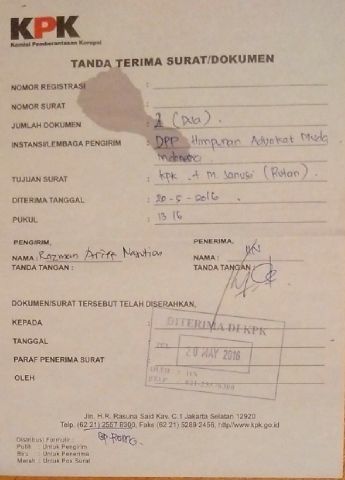 KPK
Komisi Pemberantasan Korupsi
TANDA TERIMA SURAT/DOKUMEN
NOMOR REGISTRASI :
NOMOR SURAT :
JUMLAH DOKUMEN : 2 (Dua)
INSTANSI/LEMBAGA PENGIRIM : DPP Himpunan Advokat Muda
Indonesia
TUJUAN SURAT : KPK M. Sanusi (Rutan).
DITERIMA TANGGAL : 20-5-2016.
PUKUL : 13.16
PENGIRIM, PENERIMA,
NAMA : Razman Arief Nasution NAMA :
TANDA TANGAN : TANDA TANGAN :
DOKUMEN/SURAT TERSEBUT TELAH DISERAHKAN,
KEPADA :
TANGGAL :
PARAF PENERIMA SURAT :
OLEH :
DITERIMA DI KPK
TGL 20 MAY 2016
OLEH :
TELP : 021-25578300
Jln. H.R. Rasuna Said Kav. C.1 Jakarta Selatan 12920
Telp. (62 21) 2557 8300, Faks (62 21) 5289 2456, http//www.kpk.go.id
Distribusi Formulir :
Putih : Untuk Pengirim
Biru : Untuk Penerima
Merah : Untuk Pos Surat